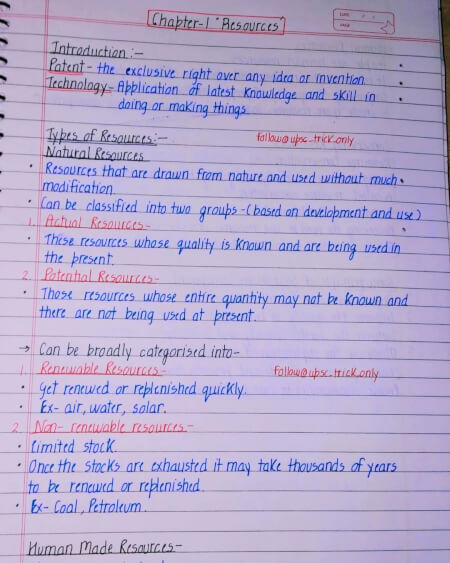 Chapter-1 "Resources"
Introduction :-
Patent - the exclusive right over any idea or invention.
Technology - Application of latest knowledge and skill in
doing or making things.
Types of Resources:-
follow@upsc_trick_only
Natural Resources
• Resources that are drawn from nature and used without much
modification.
• Can be classified into two groups-(based on development and use)
1. Actual Resources-
• These resources whose quality is known and are being used in
the present.
2. Potential Resources-
• Those resources whose entire quantity may not be known and
there are not being used at present.
→ Can be broadly categorised into-
1. Renewable Resources-
follow@upsc_trick_only
• Get renewed or replenished quickly.
• Ex- air, water, solar.
2. Non- renewable resources-
• Limited stock.
• Once the stocks are exhausted it may take thousands of years
to be renewed or replenished.
• Ex- Coal, Petroleum.
Human Made Resources-